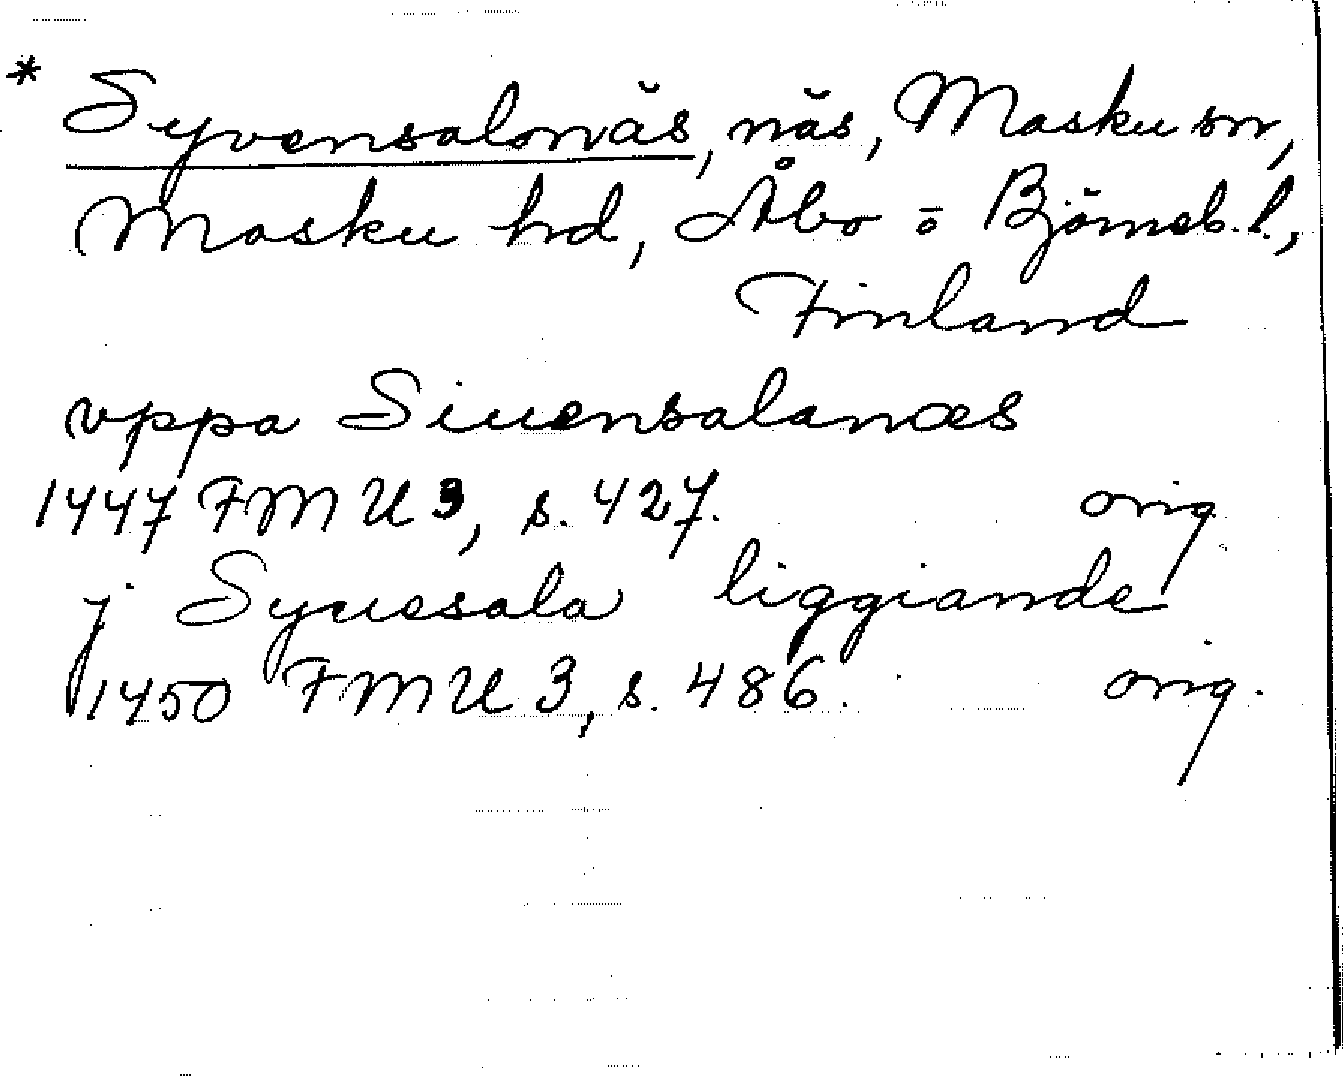 * Syvensalonäs, näs, Masku sn,
Masku hd, Åbo o Björneb. l.,
Finland
vppa Siuensalanæs
1447 FMU 3, s. 427. orig.
j Syuesala liggiande
1450 FMU 3, s. 486. orig.